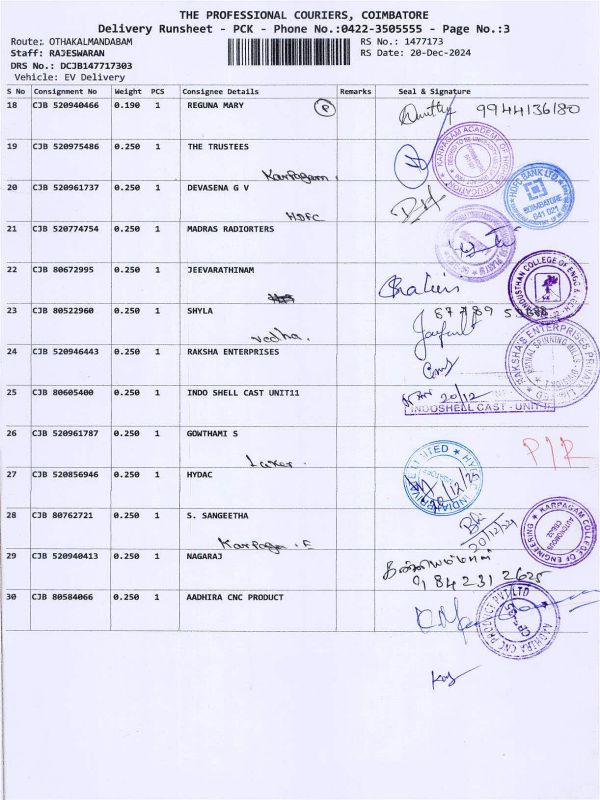 THE PROFESSIONAL COURIERS, COIMBATORE
Delivery Runsheet - PCK - Phone No.:0422-3505555 - Page No.:3
Route: OTHAKALMANDABAM RS No.: 1477173
Staff: RAJESWARAN RS Date: 20-Dec-2024
DRS No.: DCJB147717303
Vehicle: EV Delivery
S No Consignment No Weight PCS Consignee Details Remarks Seal & Signature
18 CJB 520940466 0.190 1 REGUNA MARY P 9944136180
19 CJB 520975486 0.250 1 THE TRUSTEES
Karpagam.
KARPAGAM ACADEMY OF HIGHER EDUCATION
20 CJB 520961737 0.250 1 DEVASENA G V
HDFC
HDFC BANK LTD
COIMBATORE
641 021
21 CJB 520774754 0.250 1 MADRAS RADIORTERS
22 CJB 80672995 0.250 1 JEEVARATHINAM
HINDUSTHAN COLLEGE OF ENGG & TECH
23 CJB 80522960 0.250 1 SHYLA
vedha.
24 CJB 520946443 0.250 1 RAKSHA ENTERPRISES
RAKSHA'S ENTERPRISES PRIVATE LIMITED
25 CJB 80605400 0.250 1 INDO SHELL CAST UNIT11 20/12
INDOSHELL CAST - UNIT-II
26 CJB 520961787 0.250 1 GOWTHAMI S
27 CJB 520856946 0.250 1 HYDAC
28 CJB 80762721 0.250 1 S. SANGEETHA
20/12/24
Karpagam. E
KARPAGAM COLLEGE OF ENGINEERING
AUTONOMOUS
29 CJB 520940413 0.250 1 NAGARAJ
98423 12625
30 CJB 80584066 0.250 1 AADHIRA CNC PRODUCT
AADHIRA CNC PRODUCT PVT LTD